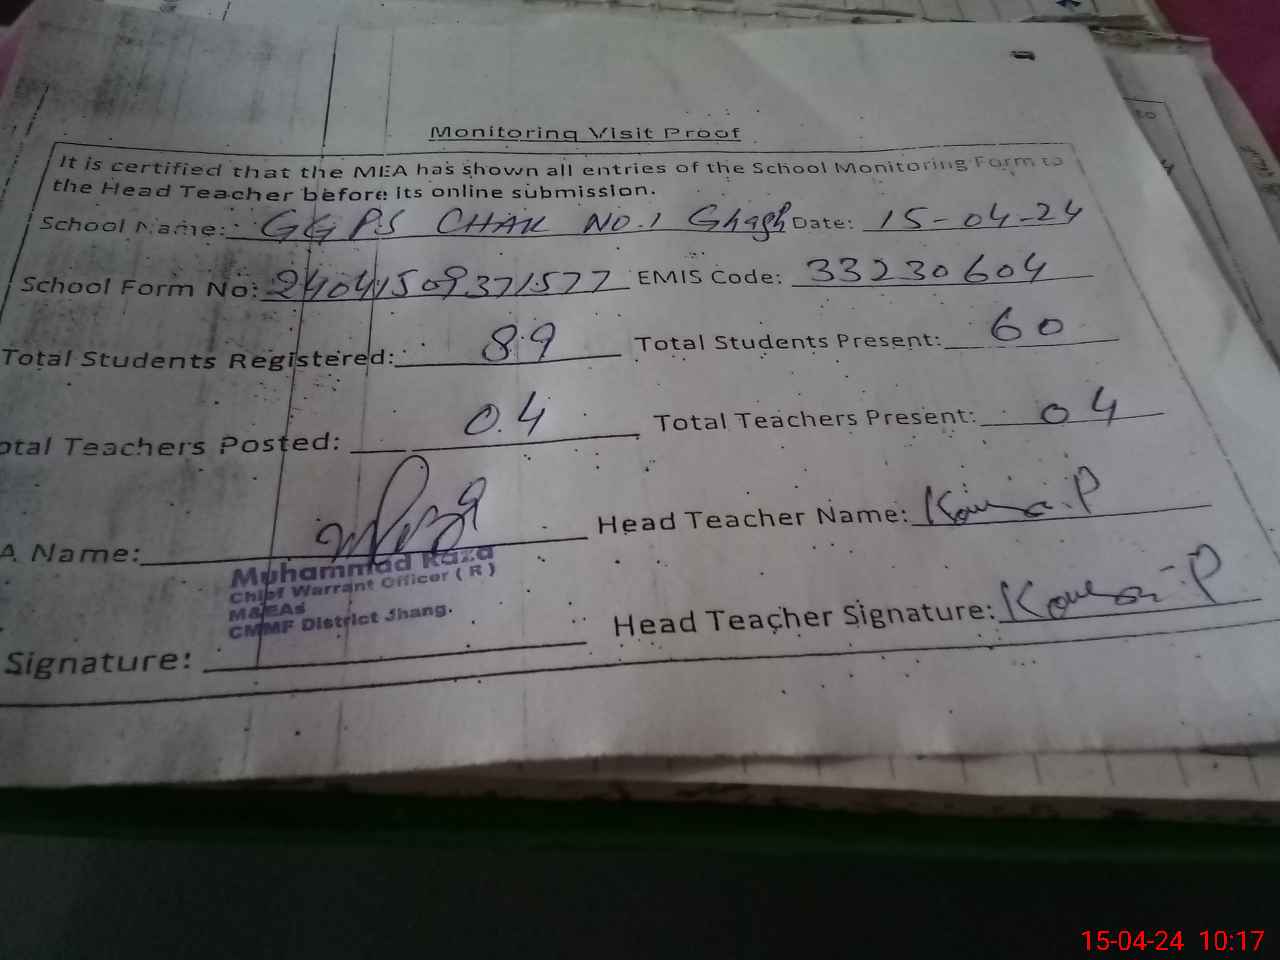 Monitoring Visit Proof
It is certified that the MEA has shown all entries of the School Monitoring Form to
the Head Teacher before its online submission.
School Name: GGPS CHAK NO.1 Ghagh Date: 15-04-24
School Form No: 24041509371577 EMIS Code: 33230604
Total Students Registered: 89 Total Students Present: 60
otal Teachers Posted: 04 Total Teachers Present: 04
A Name: Head Teacher Name: P
Muhammad Raza
Chief Warrant Officer ( R )
M&EAs
CMMF District Jhang.
Signature: Head Teacher Signature: P
15-04-24 10:17